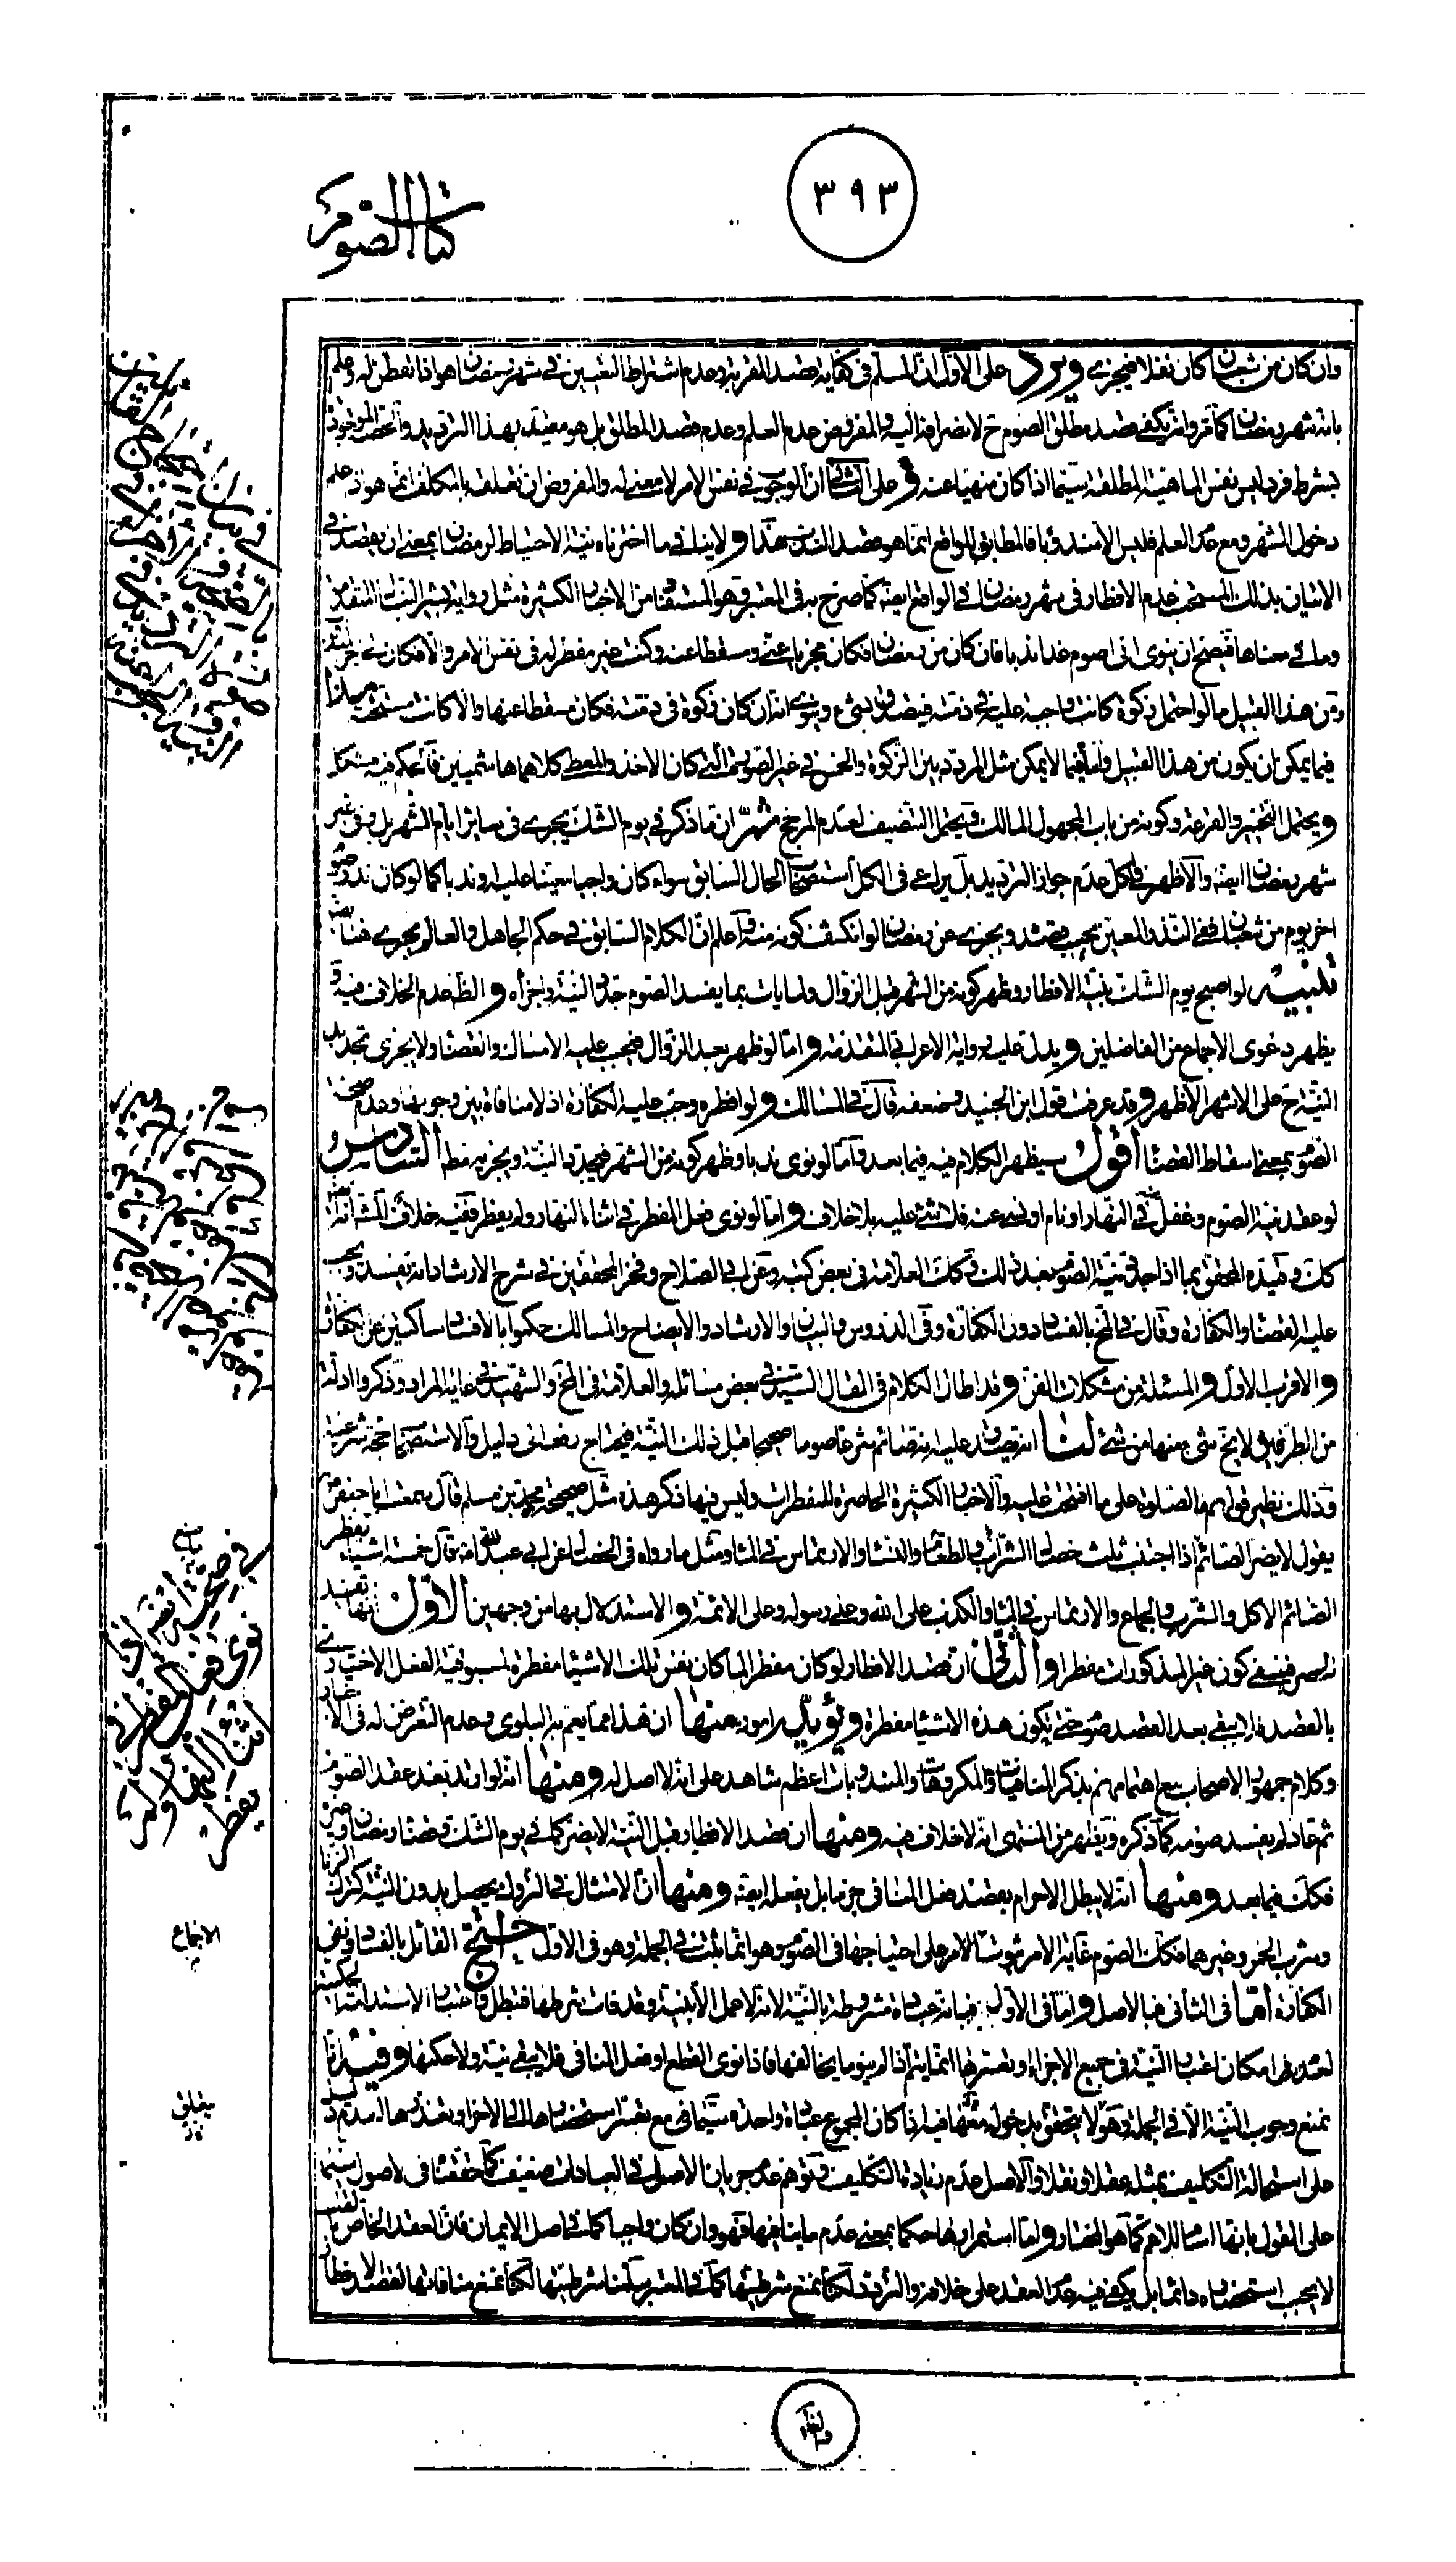 ٣٩٣
كتاب الصوم
وان كان من شعبان كان نفلا فيجزى ويرد على الاول ان المسلم فى كفاية قصد القربة وعدم اشتراط التعيين فى شهر رمضان هو اذا تفطن له وعلم
بانه شهر رمضان يكفى قصد مطلق الصوم ح لانصرافه اليه والمفروض عدم العلم وعدم قصد المطلق بل هو مقيد بهذا الترديد
بشرط فرد ليس نفس الماهية المطلقة سيما اذا كان منهيا عنه وعلى الثانى ان الوجوب فى نفس الامر لا معنى له والمفروض ان تعلقه بالمكلف انما هو اذا علم
دخول الشهر ومع عدم العلم فليس الا مندوبا فالمطابق للواقع انما هو قصد الندب هذا ولا ينافى ما اخترناه نية الاحتياط لرمضان بمعنى ان يقصد فى
الاتيان بذلك المستحب عدم الافطار فى شهر رمضان فى الواقع ايضا كما صرح به فى المعتبر وهو المستفاد من الاخبار الكثيرة مثل رواية بشير النبال المتقدمة
وما فى معناها فيصح ان ينوى انى اصوم غدا ندبا فان كان من رمضان فكان مجزيا عنى ومسقطا عنه وكنت غير مفطر له فى نفس الامر والا فكان
ومن هذا القبيل ما لو احتمل زكوة كانت واجبة عليه فى ذمته فيتصدق بشىء وينوى انه ان كان زكوة فى ذمته فكان مسقطا عنها والا كانت مستحبة هذا
فيما يمكن ان يكون من هذا القبيل واما فيما لا يمكن مثل المردد بين الزكوة والخمس فى غير الصورة التى كان الاخذ والمعطى كلاهما هاشميين فالحكم فيه مشكل
ويحتمل التخيير والقرعة وكونه من باب المجهول المالك ويحتمل التنصيف لعدم المرجح ثم ان ما ذكر فى يوم الشك يجرى فى سائر ايام الشهر بل وفى غير
شهر رمضان ايضا والاظهر فى الكل عدم جواز الترديد بل يراعى فى الكل استصحاب الحال السابق سواء كان واجبا معينا عليه او ندبا كما لو كان نذر صوم
اخر يوم من شعبان ففى النذر المعين يجب قصده ويجزى عن رمضان لو انكشف كونه منه واعلم ان الكلام السابق فى حكم الجاهل والعالم يجرى هنا ايضا
تنبيه لو اصبح يوم الشك بنية الافطار وظهر كونه من الشهر قبل الزوال ولما يات بما يفسد الصوم جدد النية واجزأه والظ عدم الخلاف فيه و
يظهر دعوى الاجماع من الفاضلين ويدل عليه رواية الاعرابى المتقدمة واما لو ظهر بعد الزوال فيجب عليه الامساك والقضاء ولا يجزى تجديد
النية ح على الاشهر الاظهر وقد عرفت قول ابن الجنيد وضعفه قال فى المسالك ولو افطره وجب عليه الكفارة اذ لا منافاة بين وجوبها وعدم صحة
الصوم بمعنى اسقاط القضاء اقول سيظهر الكلام فيه فيما بعد واما لو نوى ندبا وظهر كونه من الشهر فيجدد النية ويجزيه مطم السادس
لو عقد نية الصوم وغفل عنه فى النهار او نام او نسى عنه فلا شىء عليه بلا خلاف واما لو نوى فعل المفطر فى اثناء النهار ولم يفطر ففيه خلاف
كك وقيده المحقق بما اذا جدد نية الصوم بعد ذلك وكك العلامة فى بعض كتبه وعن ابى الصلاح وفخر المحققين فى شرح الارشاد انه يفسده ويجب
عليه القضاء والكفارة وقال فى المخ بالفساد دون الكفارة وفى الدروس والبيان والارشاد والايضاح والمسالك حكموا بالافساد ساكتين عن الكفارة
والاقرب الاول والمسئلة من مشكلات الفن وقد اطال الكلام فى المقال السيد فى بعض مسائله والعلامة فى المخ والشهيد فى غاية المراد وذكروا ادلة
من الطرفين لا يخ شىء منها من شىء لنا انه يصدق عليه انه صائم شرعا صوما صحيحا قبل ذلك النية فيحتاج رفعه الى دليل والاستصحاب حجة شرعية
وذلك نظير قولهم ع الصلوة على ما افتتحت عليه والاخبار الكثيرة الحاصرة للمفطرات وليس فيها ذكر هذه مثل صحيحة محمد بن مسلم قال سمعت ابا جعفر ع
يقول لا يضر الصائم اذا اجتنب ثلث خصال الشراب والطعام والنساء والارتماس فى الماء ومثل ما رواه فى الخصال عن ابى عبد الله ع انه قال خمسة اشياء تفطر
الصائم الاكل والشرب والجماع والارتماس فى الماء والكذب على الله وعلى رسوله وعلى الائمة والاستدلال بها من وجهين الاول انها تفيد
الحصر فينفى كون غير المذكورات مفطرا والثانى ان قصد الافطار لو كان مفطرا لما كان نفس تلك الاشياء مفطرة لمسبوقية الفعل الاختيارى
بالقصد فلا يبقى بعد القصد صوم حتى يكون هذه الاشياء مفطرة ويؤيده امور منها ان هذا مما يعم به البلوى وعدم التعرض له فى الاخبار
وكلام جمهور الاصحاب مع اهتمامهم بذكر المنافيات والمكروهات والمندوبات اعظم شاهد على انه لا اصل له ومنها انه لو ارتد بعد عقد الصوم
ثم عاد لم يفسد صومه كما ذكره ويظهر من المنتهى انه لا خلاف فيه ومنها ان قصد الافطار قبل النية لا يضر كما فى يوم الشك وقضاء رمضان وغيره
فكك فيما بعد ومنها انه لا يبطل الاحرام بقصد فعل المنافى جزما بل بفعله ايضا ومنها ان الامتثال فى التروك يحصل بدون النية كترك الزنا
وشرب الخمر وغيرهما فكك الصوم غاية الامر ثبوت الامر على احتياجها فى الصوم وهو انما يثبت فى الجملة وهو فى الاول احتج القائل بالفساد ونفى
الكفارة اما فى الثانى فبالاصل واما فى الاول فبانه عبادة مشروطة بالنية لانه لا عمل الا بنية وقد فات شرطها فتبطل واعتبار الاستدامة الحكمية
لعدم امكان اعتبار النية فى جميع الاجزاء او تعسرها انما يتم اذا لم ينو ما يخالفها فاذا نوى القطع او فعل المنافى فلا يبقى نية ولا حكمها وفيه انا
نمنع وجوب النية الا فى الجملة وهو لا يتحقق بدخوله معها فيه اذا كان المجموع عبادة واحدة سيما مع تعسر استحضارها الى الاخر او تعذرها
على استحالة التكليف بمثله عقلا ونقلا والاصل عدم زيادة التكليف وتوهم عدم جريان الاصل فى العبادات ضعيف كما حققناه فى الاصول سيما
على القول بانها اسام للاعم كما هو المختار واما استمرارها حكما بمعنى عدم ما ينافيها فهو وان كان واجبا كما فى اصل الايمان فان العقد الخاص بالقلب
لا يجب استحضاره دائما بل يكفى فيه عدم العقد على خلافه والتردد لكنا نمنع شرطيتها كما فى المعتبر سلمنا شرطيتها لكنا نمنع منافاتها لقصد الافطار
فى صحة صوم
نوى فعل المفطر فى
اثناء النهار ولم
يفطر
الاجماع